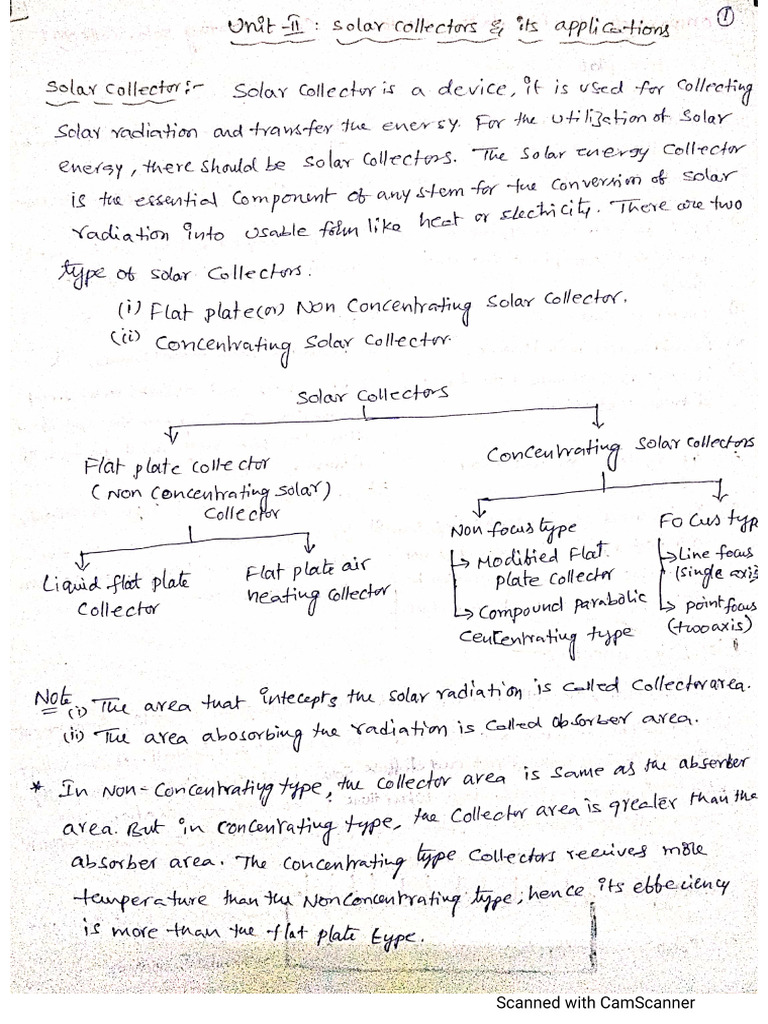 1
Unit-II : Solar Collectors & its applications
Solar Collector:- Solar Collector is a device, it is used for collecting
Solar radiation and transfer the energy. For the utilization of Solar
energy, there should be solar collectors. The solar energy collector
is the essential component of any stem for the conversion of solar
radiation into usable form like heat or electricity. There are two
type of solar collectors.
(i) Flat plate(or) Non Concentrating Solar Collector.
(ii) Concentrating Solar Collector.
Solar Collectors
Flat plate collector
(Non Concentrating solar)
Collector
Concentrating Solar collectors
Liquid flat plate
Collector
Flat plate air
heating collector
Non focus type
→ Modified Flat
plate Collector
→ Compound parabolic
Cencentrating type
Focus typ
→ Line focus
(single axis
→ point focus
(two axis)
Note
(i) The area that intecepts the solar radiation is called Collector area.
(ii) The area abosorbing the radiation is called absorber area.
* In Non-Concentrating type, the collector area is same as the absorber
area. But in concentrating type, the collector area is greater than the
absorber area. The concentrating type collectors receives more
temperature than the Nonconcentrating type; hence its effeciency
is more than the flat plate type.
Scanned with CamScanner